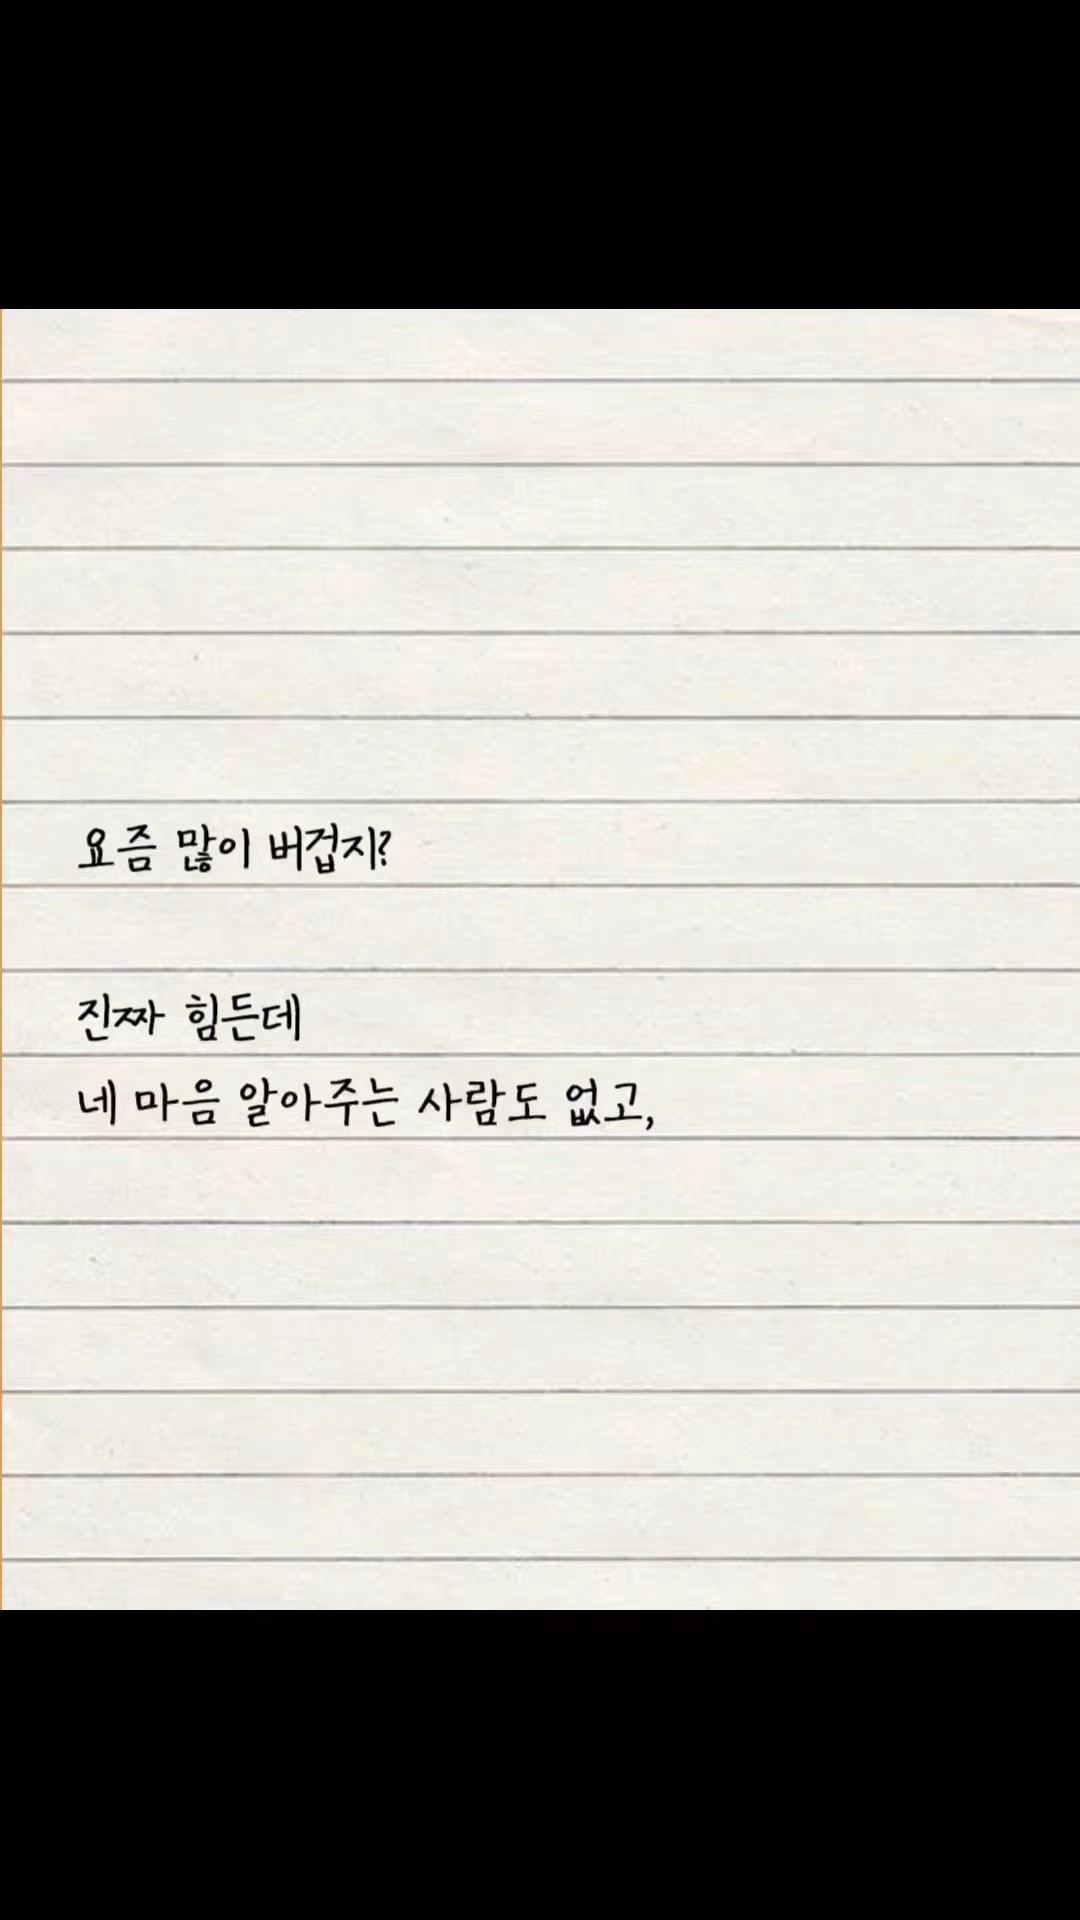 요즘 많이 버겁지?
진짜 힘든데
네 마음 알아주는 사람도 없고,